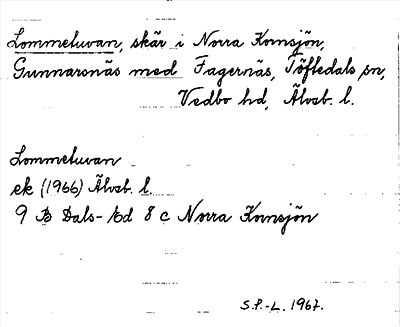 Lommeluvan, skär i Norra Kornsjön,
Gunnarsnäs med Fagernäs, Töftedals sn,
Vedbo hd, Älvsb. l.
Lommeluvan
ek (1966) Älvsb. l.
9 B Dals-Ed 8 c Norra Kornsjön
S.P.-L. 1967.